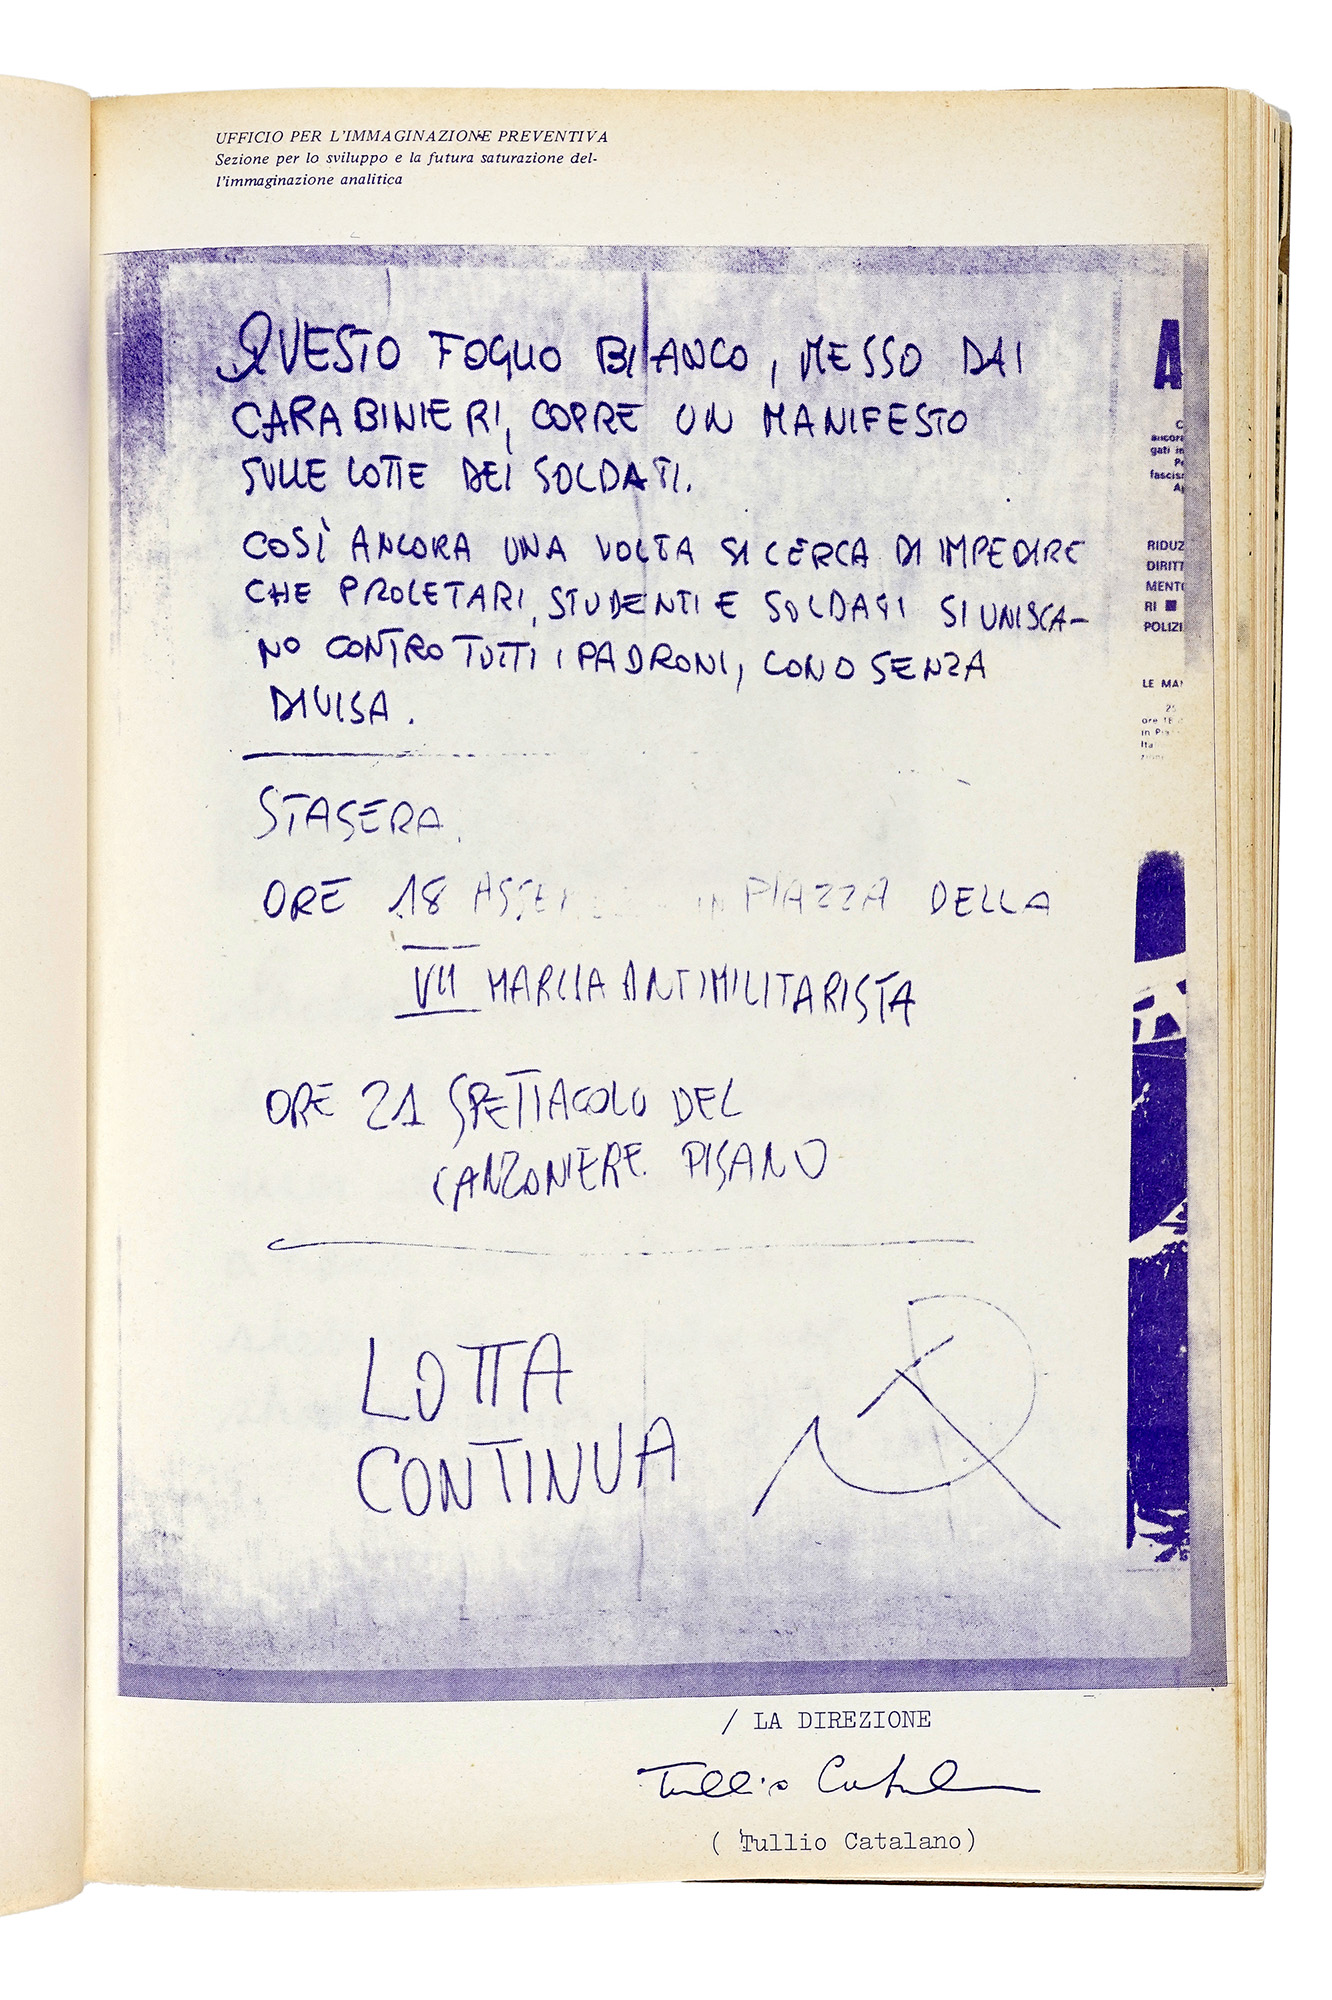 UFFICIO PER L'IMMAGINAZIONE PREVENTIVA
Sezione per lo sviluppo e la futura saturazione del-
l'immaginazione analitica
QUESTO FOGLIO BIANCO, MESSO DAI
CARABINIERI, COPRE UN MANIFESTO
SULLE LOTTE DEI SOLDATI.
COSÌ ANCORA UNA VOLTA SI CERCA DI IMPEDIRE
CHE PROLETARI, STUDENTI E SOLDATI SI UNISCA-
NO CONTRO TUTTI I PADRONI, CON O SENZA
DIVISA.
STASERA.
ORE 18 IN PIAZZA DELLA
VII MARCIA ANTIMILITARISTA
ORE 21 SPETTACOLO DEL
CANZONIERE PISANO
LOTTA
CONTINUA
A
C
ancora
gati in
Pe
fascis
Ap
RIDUZ
DIRITT
MENTO
RI
POLIZI
LE MA
25
ore 18
in Pia
Ita
/ LA DIREZIONE
Tullio Catalano
( Tullio Catalano)